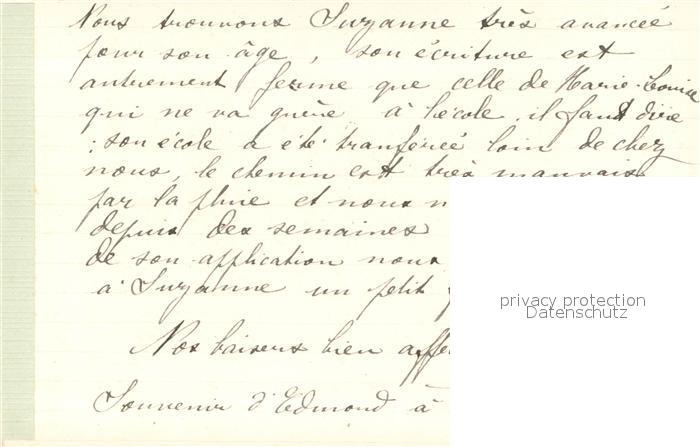 Nous trouvons Suzanne très avancée
pour son âge, son écriture est
autrement ferme que celle de Marie-Louise
qui ne va guère à l'école, il faut dire
; son école a été tranférée loin de chez
nous, le chemin est très mauvais
par la pluie et nous
depuis des semaines
de son application nous
à Suzanne un petit
privacy protection
Datenschutz
Nos baisers bien
Souvenir d'Edmond à